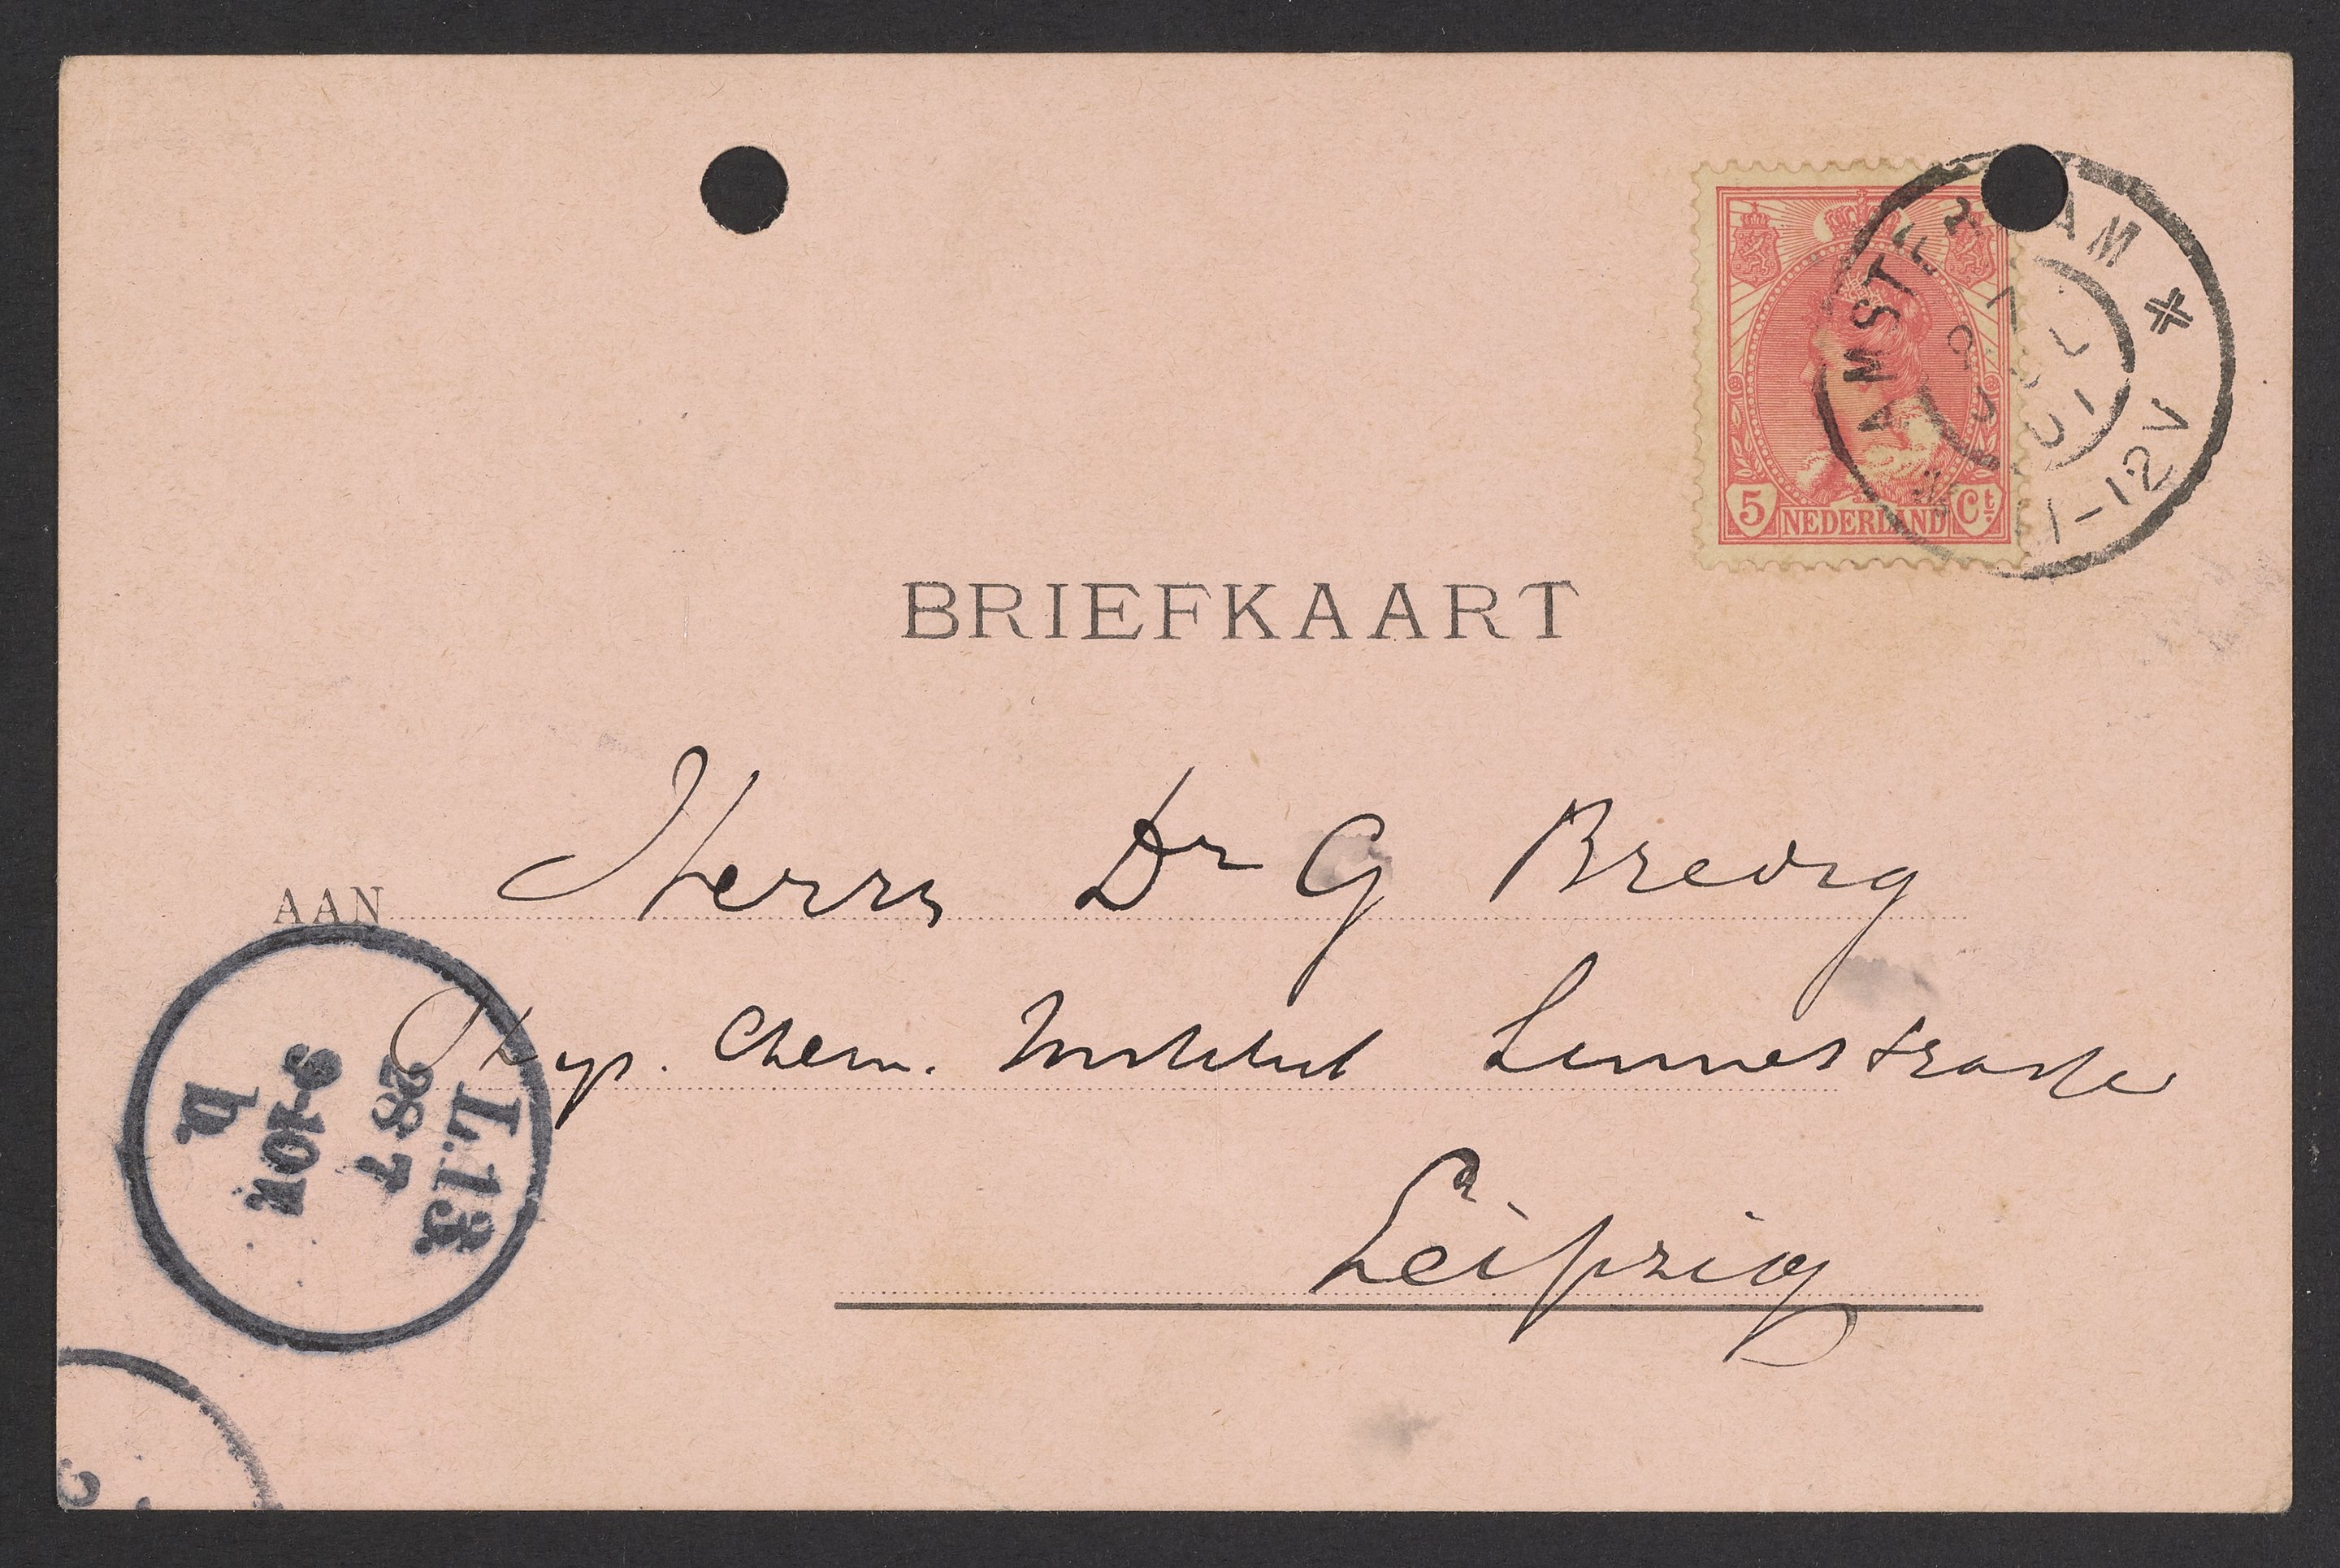 AMSTERDAM
27 JUL 01
1-12V
5 NEDERLAND Ct
BRIEFKAART
AAN Herrn Dr G Bredig
Phys. Chem. Institut Linnestrasse
Leipzig
L. 13.
28 7
9-10V.
b.